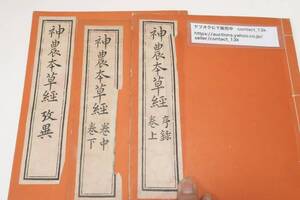 神農本草經 序錄
卷上
神農本草經 卷中
卷下
神農本草經 攷異
ヤフオクにて販売中 contact_13k
https://auctions.yahoo.co.jp/
seller/contact_13k